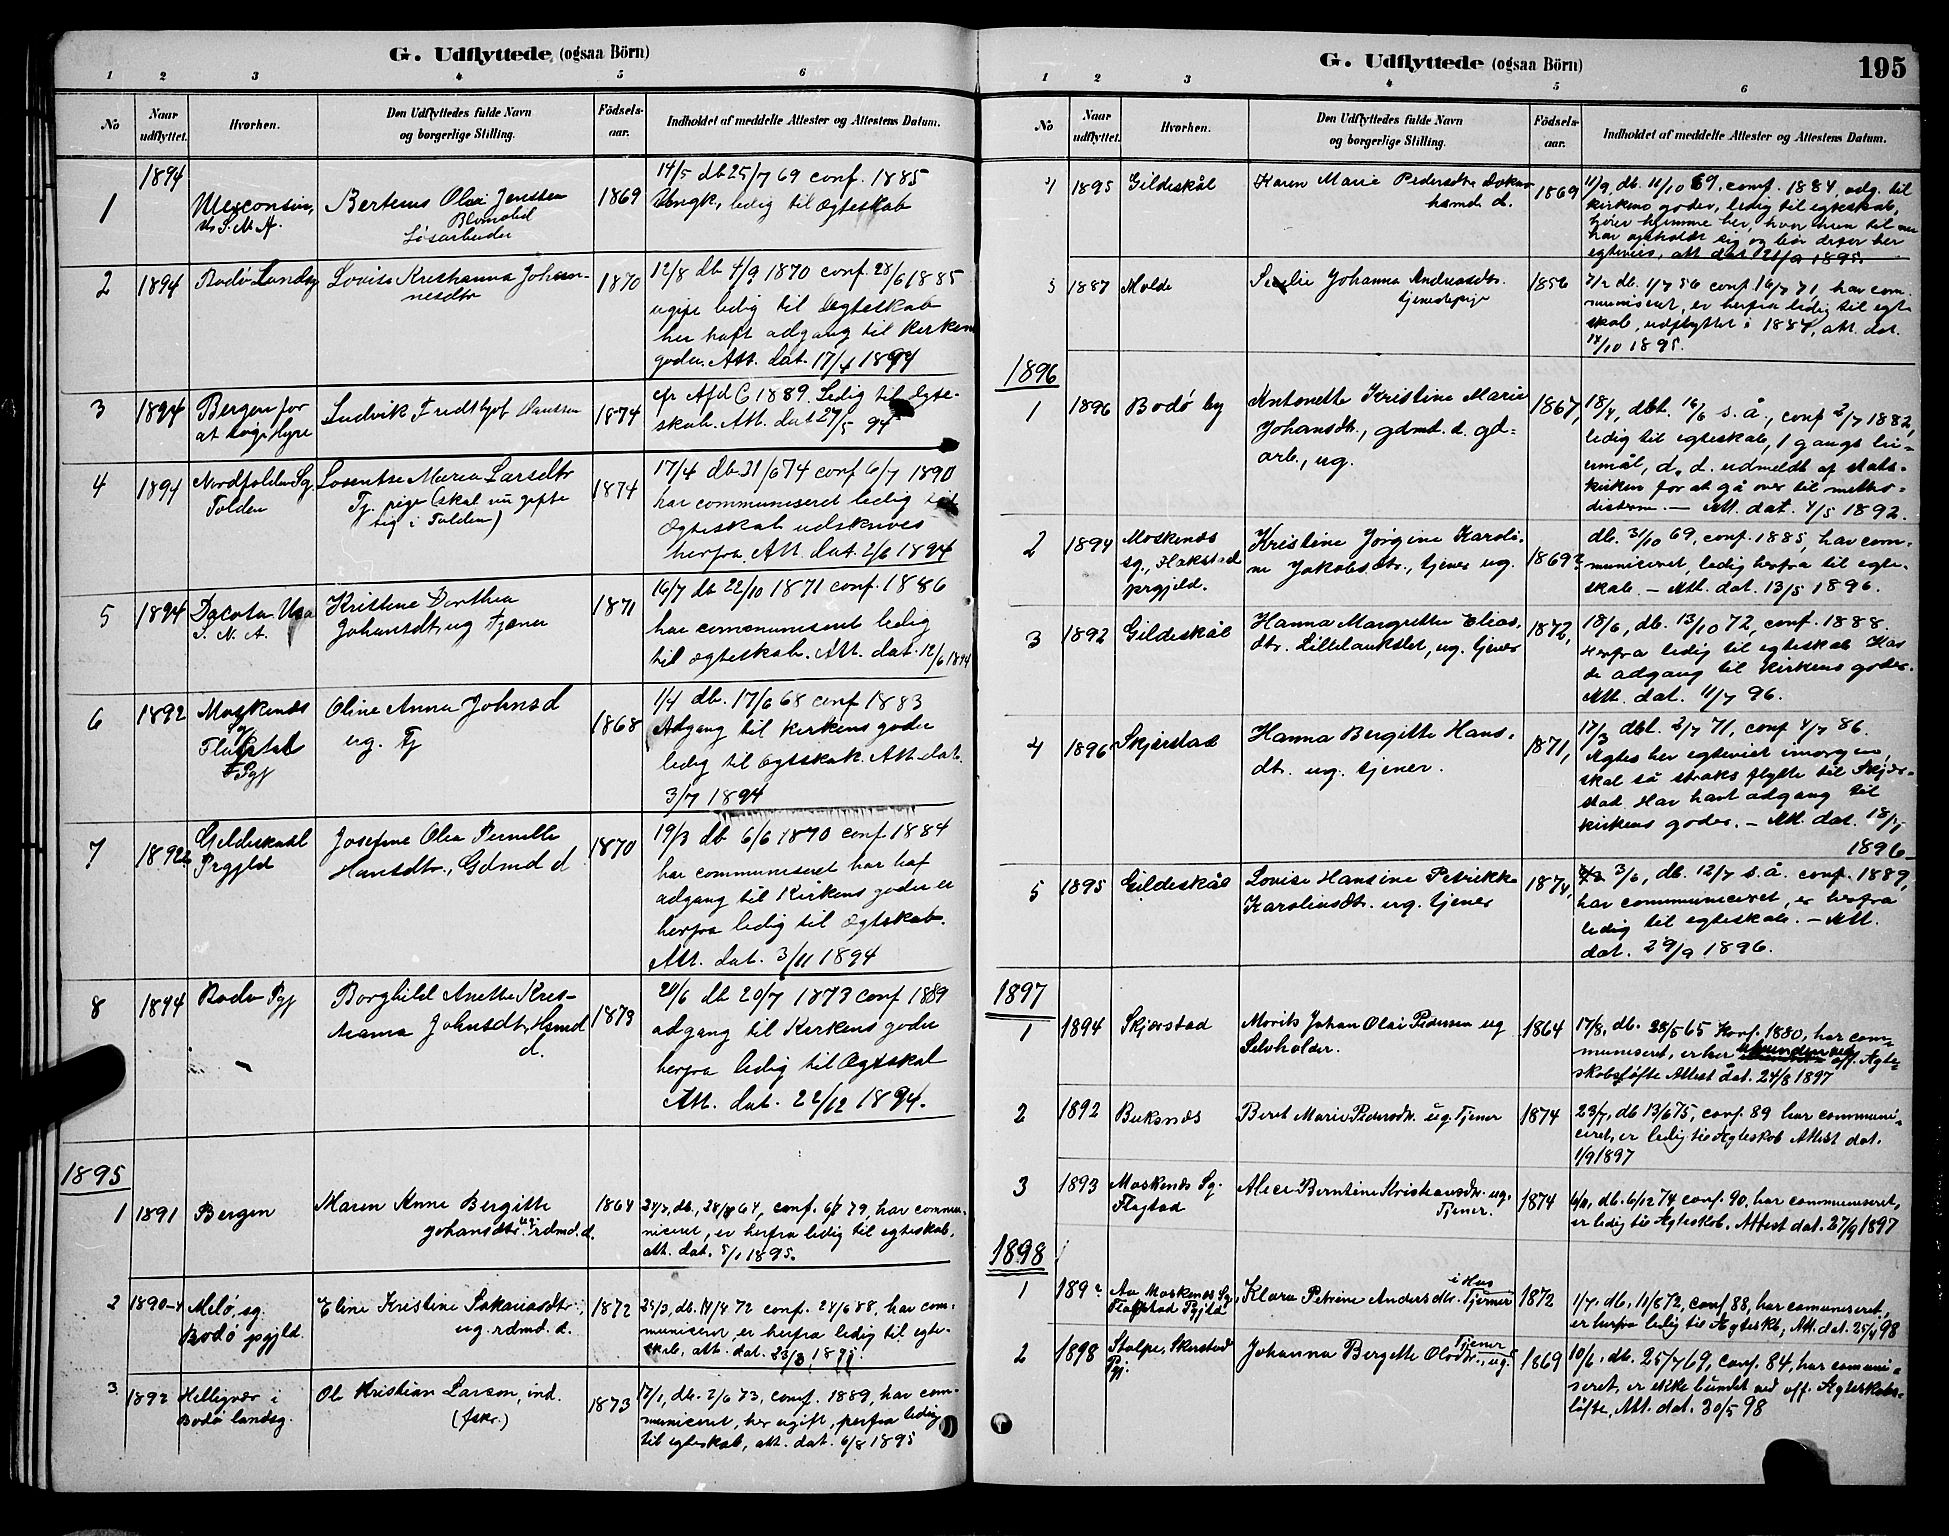 G. Udflyttede (ogsaa Börn)
1 2 3 4 5 6
No
Naar udflyttet.
Hvorhen.
Den Udflyttedes fulde Navn
og borgerlige Stilling.
Födsels-
aar.
Indholdet af meddelte Attester og Attestens Datum.
1894
1
U. S. N. A.
Bertenus Olai Jenssen
Løsarbeider
1869
14/5 db 25/7 69 conf. 1885
ledig til Ægteskab
2 1894 Bodø Landsg
Lovise Kristianna Johan-
nesdtr
1870
12/8 db 4/9 1870 conf. 28/6 1885
ugift ledig til Ægteskab
her haft adgang til Kirkens
goder. Att. dat. 17/4 1894
3 1894 Bergen for
at søge Hyre
Ludvik Fridthjof Hanssen
1874
cfr Afd C 1889. Ledig til Ægte-
skab. Att. dat 27/5 94
4 1894 Nordfolden Sg.
Folden
Losentse Maria Larsdtr
Tj. pige (skal nu gifte
sig i Folden)
1874
17/4 db 21/6 74 conf 6/7 1890
har communiseret ledig til
Ægteskab udskrives
herfra. Att. dat. 2/6 1894
5 1894 Dacota Usa
S. N. A.
Kristine Dorthea
Johansdtr, ug Tjener
1871
16/7 db 22/10 1871 conf. 1886
har communiseret ledig
til ægteskab. Att. dat. 12/6 1894
6 1892 Moskenæs
Sg
Flakstad
Pgj
Oline Anna Johnsd
ug. Tj
1868
1/4 db. 17/6 68 conf 1883
Adgang til Kirkens goder
ledig til Ægtskab. Att. dat.
3/7 1894
7 1892 Gildeskaal
Prgjld
Josefine Olea Pernille
Hansdtr., Gdmd d
1870
19/3 db 6/6 1870 conf 1884
har communiseret har haf
adgang til Kirkens goder er
herfra ledig til Ægtskab.
Att. dat. 3/11 1894
8 1894 Bodø Pgj
Borghild Anette Kris-
Johnsdtr, Hsmd
d.
1873
20/6 db 20/7 1873 conf 1889
adgang til Kirkens goder
herfra ledig til Ægtskab
Att. dat. 22/12 1894.
1895
1 1891 Bergen
Maren Anne Bergitte
Johansdtr. ug. rdmd. d.
1864
24/7, db. 28/8 64, conf. 6/7 79, har commu-
niceret, er herfra ledig til egteskab,
att. dat. 5/1 1895.
2 1890-4 Melø, sg.
Bodø pgjld.
Eline Kristine Sakariasdtr.,
ug. rdmd. d.
1872
db. 14/4 72 conf. 24/6 88, har com-
municeret er herfra ledig til egte-
skab, att. dat. 23/3 1895.
3 1892 Helligvær i
Bodø landsg.
Ole Kristian Larsen, ind.
(fskr.)
1873
17/1, db. 2/6 73, conf. 1889, har com-
municeret, her ugift, herfra ledig
til egteskab, att. dat. 6/8 1895
G. Udflyttede (ogsaa Börn)
195
1 2 3 4 5 6
No
Naar udflyttet.
Hvorhen.
Den Udflyttedes fulde Navn
og borgerlige Stilling.
Födsels-
aar.
Indholdet af meddelte Attester og Attestens Datum.
4 1895 Gildeskål
Karen Marie Pedersdtr
hsmd. d.
1869
11/9, db. 11/10 69, conf. 1884, adg. til
kirkens goder, ledig til egteskab,
hører hjemme her, hvor hun til nu
har opholdt sig og bør derfor her
egtevies, att. dat 21/9 1895.
5 1887 Molde
Seselie Johanna Andreasdtr.
tjenestepige
1856
7/2 db. 1/7 56 conf 16/7 71, har com-
muniseret, er herfra ledig til egte
skab, udflyttet i 1887, att. dat.
14/10 1895.
1896
1 1896 Bodø by
Antonette Kristine Marie
Johansdtr., gdmd. d. gd=
arb., ug.
1867,
18/4, dbt. 16/6 s. å., conf 2/7 1882,
ledig til egteskab, 1 gangs li-
umål, d. d. udmeldt af stats-
kirken for at gå over til metho-
disterne. — Att. dat. 4/5 1892.
2 1894 Moskenæs
sg., Flakstad
prgjeld.
Kristine Jørgine Karoli-
ne Jakobsdtr., tjener ug.
1869?
db. 31/10 69, conf. 1885, har com-
municeret, ledig herfra til egte-
skab. — Att. dat. 13/5 1896.
3 1892 Gildeskål
Hanna Margrethe Elias-
dtr. ug. tjener
1872,
18/6, db. 13/10 72, conf. 1888.
Herfra ledig til egteskab Hav
de adgang til Kirkens goder.
Att. dat. 11/7 96.
4 1896 Skjerstad
Hanna Bergitte Hans-
dtr. ug. tjener.
1871,
17/3 dbt. 2/7 71, conf 4/7 86.
Agtes her egteviet imorgen,
skal så straks flytte til Skjer-
stad. Har havt adgang til
kirkens goder. — Att. dat. 18/7
1896—
5 1895 Gildeskål
Lovise Hansine Petrikke
Karoliusdtr. ug. tjener
1874,
3/6, db. 12/7 s. å. conf. 1889,
har communiceret, er herfra
ledig til egteskab. — Att.
dat. 29/9 1896.
1897
1 1894 Skjerstad
Morits Johan Olai Pedersen ug
Selvholder.
1864
17/8, db. 28/5 65 Konf. 1880, har com-
muniseret, er her ubunden ved off. Ægte-
skabsløfte Attest dat. 24/8 1897
2 1892 Buksnæs
Beret Marie Pedersdtr. ug. Tjener
1874
23/7, db 13/6 75, conf. 89 har communi-
ciret, er ledig til Ægteskab Attest dat.
1/9 1897
3 1893 Moskenæs Sg.
Flagstad
Alice Berntine Kristiansdtr. ug.
Tjener.
1874
db. 6/12 74 conf. 90, har communiseret,
er ledig til Ægteskab. Attest dat. 27/9 1897
1898
1 Aa Moskenæs Sg,
Flagstad Pgjld
Klara Petrine Andersdtr. i Hus
Tjener
1872
1/7, db, 11/8 72, conf 88, har comuniseret,
er herfra ledig til Ægteskb, Att. dat. 25/4 98
2 1898 Stolpe, Skerstad
Pgj.
Johanna Bergette Olsdtr., Tjener
ug.
1869
10/6, db. 25/7 69, conf. 84, har comuni-
seret, er ikke bundet ved off. Ægteskabs-
løfte, Att. dat. 30/5 98